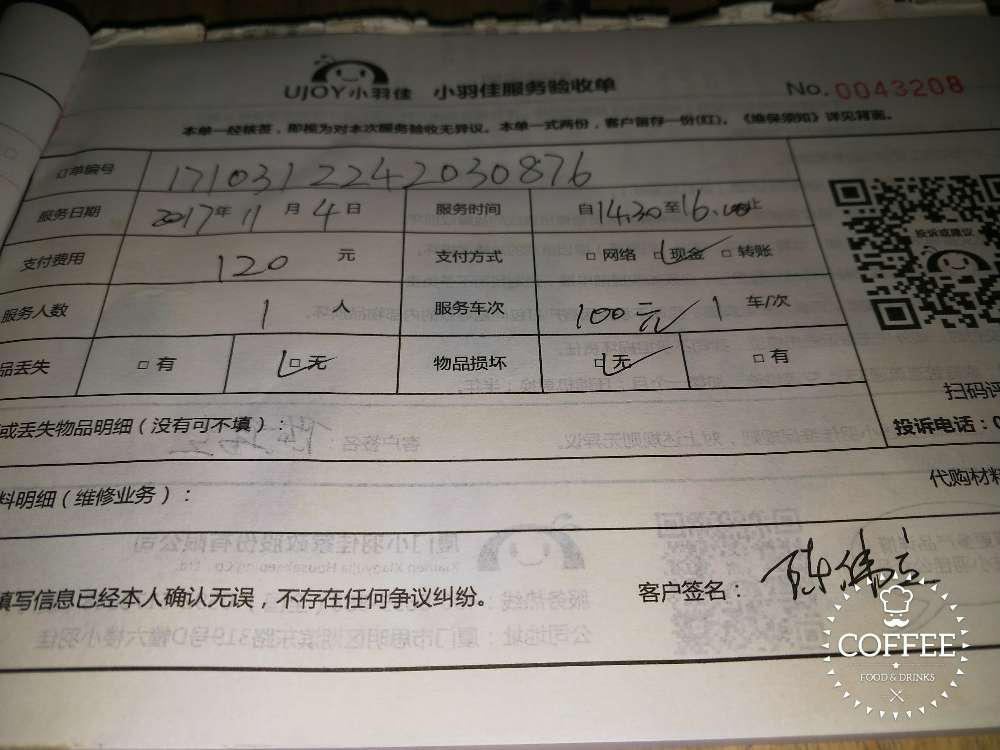 UJOY小羽佳 小羽佳服务验收单 No.0043208
本单一经核签，即视为对本次服务验收无异议。本单一式两份，客户留存一份(红)。《维保须知》详见背面。
订单编号 1710312242030876
服务日期 2017年11月4日 服务时间 自14:30至16:00止
投诉或建议
支付费用 120元 支付方式 □网络 □现金 □转账
服务人数 1人 服务车次 100元 1车/次
品丢失 □有 □无 物品损坏 □无 □有
扫码评
或丢失物品明细（没有可不填）： 投诉电话：0
料明细（维修业务）： 代购材料
填写信息已经本人确认无误，不存在任何争议纠纷。 客户签名：
COFFEE
FOOD & DRINKS